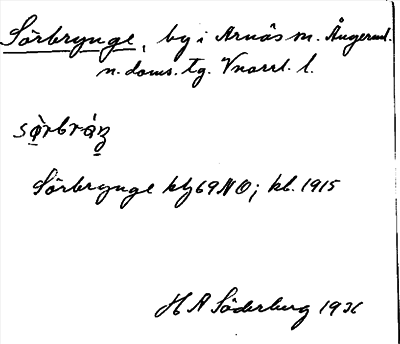 Sörbrynge, by i Arnäs sn. Ångerml.
n. doms. tg. Vnorrl. l.
Sörbrynge kbl 69 NO; kb. 1915
H A Söderburg 1936